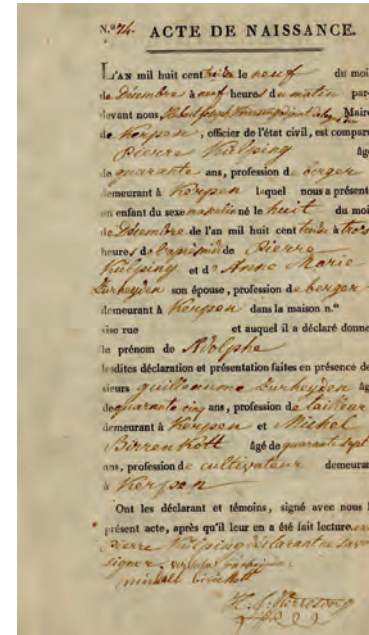 N.º 74. ACTE DE NAISSANCE.
L'AN mil huit cent treize le neuf du moi
de Décembre à neuf heures du matin par
devant nous, Maire
de Kerpen, officier de l'état civil, est compar
Pierre Külping âg
de quarante ans, profession de berger
demeurant à Kerpen lequel nous a présent
un enfant du sexe masculin né le huit du moi
de Décembre de l'an mil huit cent treize à trois
heures de l'après midi de Pierre
Külping et d' Anne Marie
Zurheyden son épouse, profession de berger
demeurant à Kerpen dans la maison n.º
sise rue et auquel il a déclaré donne
le prénom de Adolphe
lesdites déclaration et présentation faites en présence de
sieurs guillaume Zurheyden âg
de quarante cinq ans, profession de tailleur
demeurant à Kerpen et Michel
Birrenkott âgé de quarante sept
ans, profession de cultivateur demeuran
à Kerpen
Ont les déclarant et témoins, signé avec nous l
présent acte, après qu'il leur en a été fait lecture.
Pierre Külping déclarant ne savoir
signer.